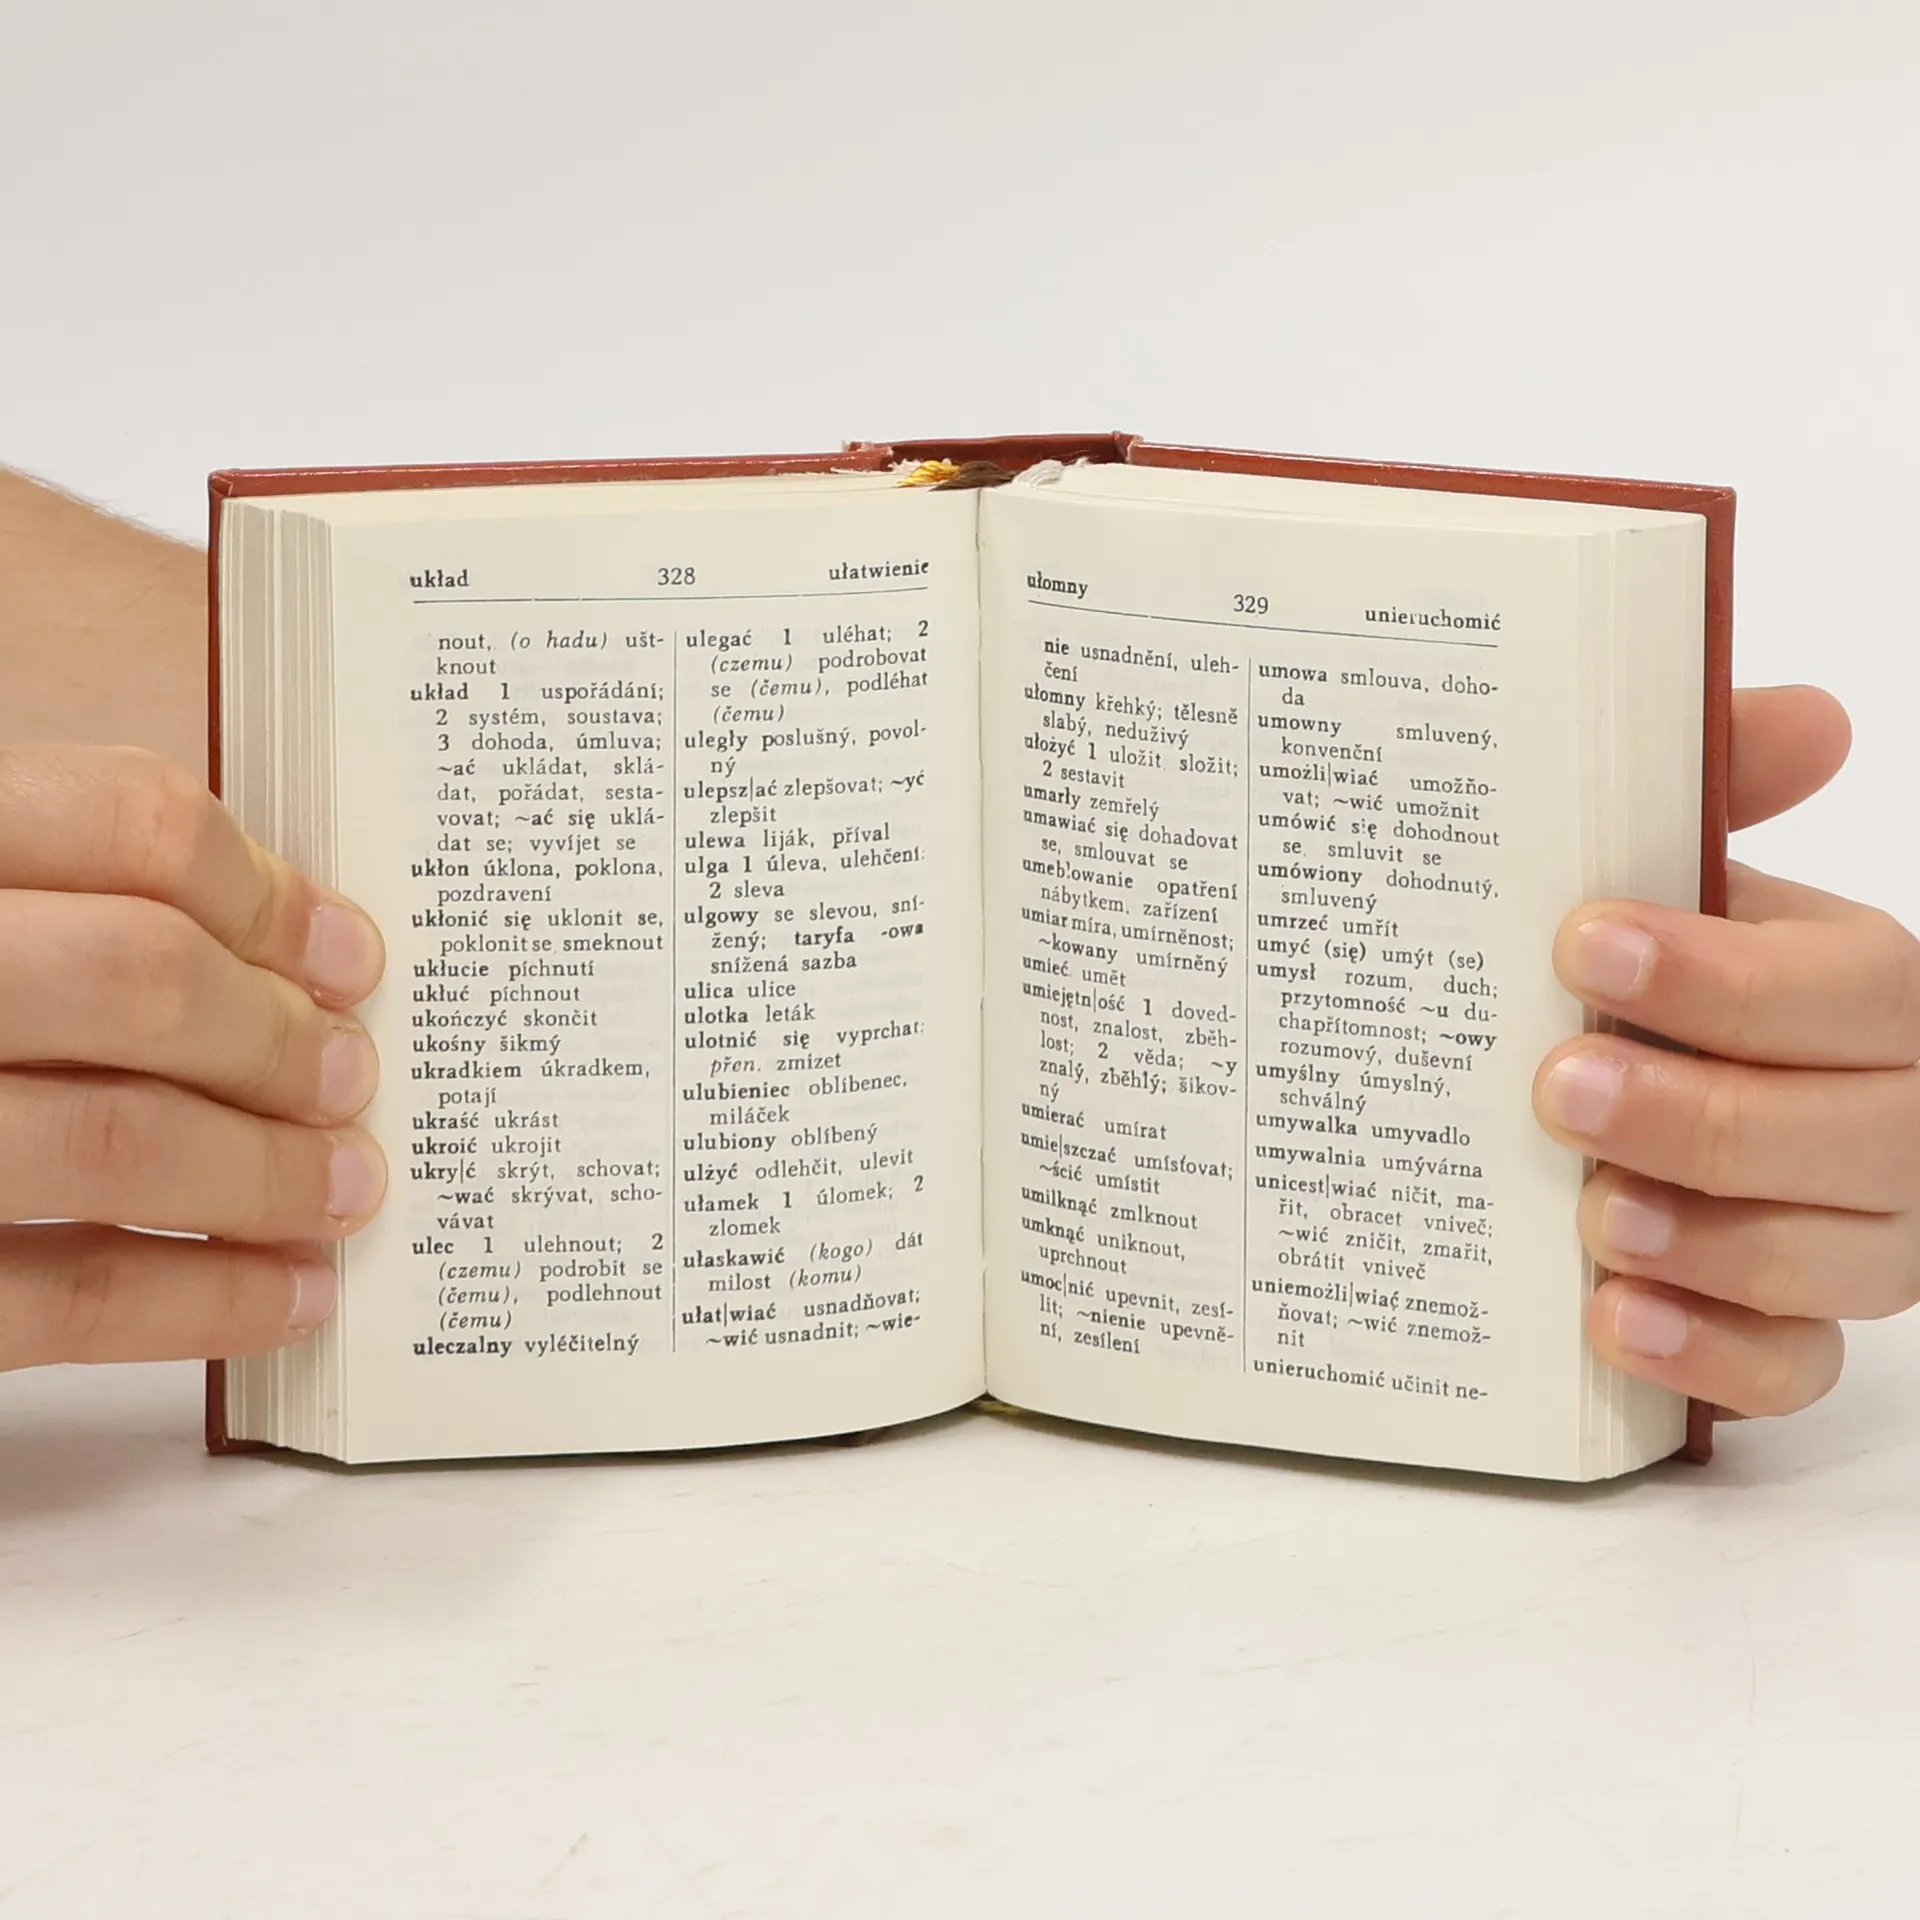 układ 328 ułatwienie
nout, (o hadu) ušt-
knout
układ 1 uspořádání;
2 systém, soustava;
3 dohoda, úmluva;
~ać ukládat, sklá-
dat, pořádat, sesta-
vovat; ~ać się uklá-
dat se; vyvíjet se
ukłon úklona, poklona,
pozdravení
ukłonić się uklonit se,
poklonit se, smeknout
ukłucie píchnutí
ukłuć píchnout
ukończyć skončit
ukośny šikmý
ukradkiem úkradkem,
potají
ukraść ukrást
ukroić ukrojit
ukry|ć skrýt, schovat;
~wać skrývat, scho-
vávat
ulec 1 ulehnout; 2
(czemu) podrobit se
(čemu), podlehnout
(čemu)
uleczalny vyléčitelný
ulegać 1 uléhat; 2
(czemu) podrobovat
se (čemu), podléhat
(čemu)
uległy poslušný, povol-
ný
ulepsz|ać zlepšovat; ~yć
zlepšit
ulewa liják, příval
ulga 1 úleva, ulehčení:
2 sleva
ulgowy se slevou, sní-
žený; taryfa -owa
snížená sazba
ulica ulice
ulotka leták
ulotnić się vyprchat:
přen. zmizet
ulubieniec oblíbenec,
miláček
ulubiony oblíbený
ulżyć odlehčit, ulevit
ułamek 1 úlomek; 2
zlomek
ułaskawić (kogo) dát
milost (komu)
ułat|wiać usnadňovat;
~wić usnadnit; ~wie-
ułomny 329 unieruchomić
nie usnadnění, uleh-
čení
ułomny křehký; tělesně
slabý, neduživý
ułożyć 1 uložit, složit;
2 sestavit
umarły zemřelý
umawiać się dohadovat
se, smlouvat se
umeblowanie opatření
nábytkem, zařízení
umiar míra, umírněnost;
~kowany umírněný
umieć umět
umiejętn|ość 1 doved-
nost, znalost, zběh-
lost; 2 věda; ~y
znalý, zběhlý; šikov-
ný
umierać umírat
umie|szczać umísťovat;
~ścić umístit
umilknąć zmlknout
umknąć uniknout,
uprchnout
umoc|nić upevnit, zesí-
lit; ~nienie upevně-
ní, zesílení
umowa smlouva, doho-
da
umowny smluvený,
konvenční
umożli|wiać umožňo-
vat; ~wić umožnit
umówić się dohodnout
se, smluvit se
umówiony dohodnutý,
smluvený
umrzeć umřít
umyć (się) umýt (se)
umysł rozum, duch;
przytomność ~u du-
chapřítomnost; ~owy
rozumový, duševní
umyślny úmyslný,
schválný
umywalka umyvadlo
umywalnia umývárna
unicest|wiać ničit, ma-
řit, obracet vniveč;
~wić zničit, zmařit,
obrátit vniveč
uniemożli|wiać znemož-
ňovat; ~wić znemož-
nit
unieruchomić učinit ne-